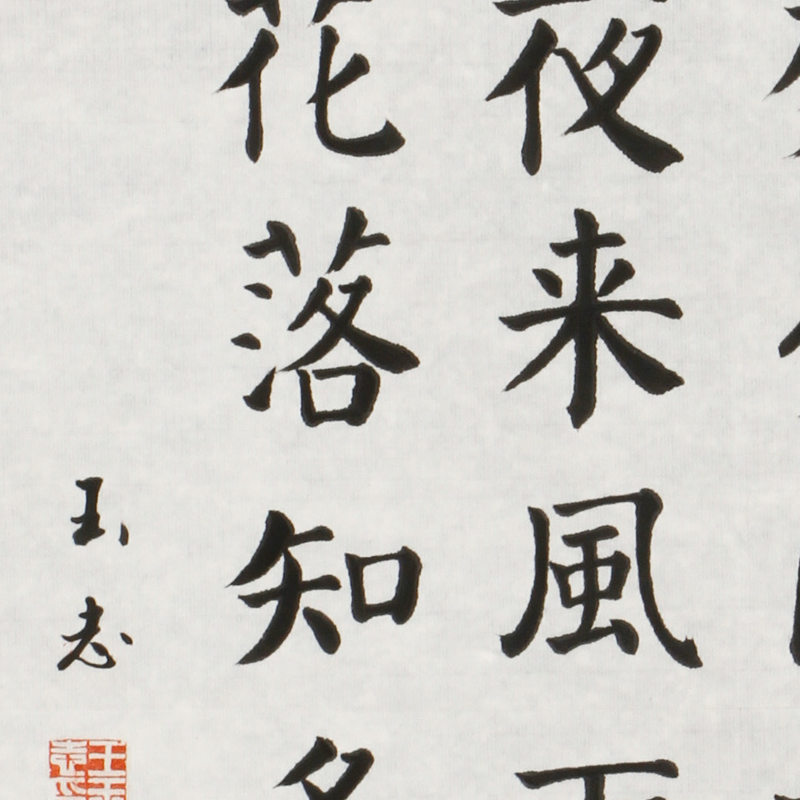 夜来風
花落知
玉志
王
志